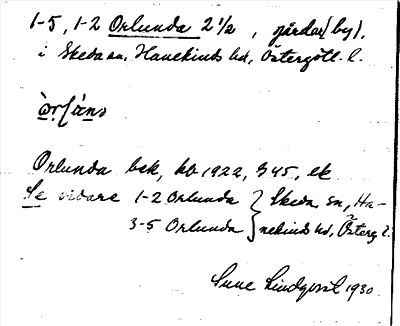 1-5, 1-2 Orlunda 2 1/2, gårdar (by).
i Skeda sn. Hanekinds hd, Östergötl. l.
Orlunda bek, kb 1922, 345, ek
Se vidare 1-2 Orlunda } Skeda sn, Ha-
3-5 Orlunda } nekinds hd, Österg l.
Sune Lindqvist 1930.